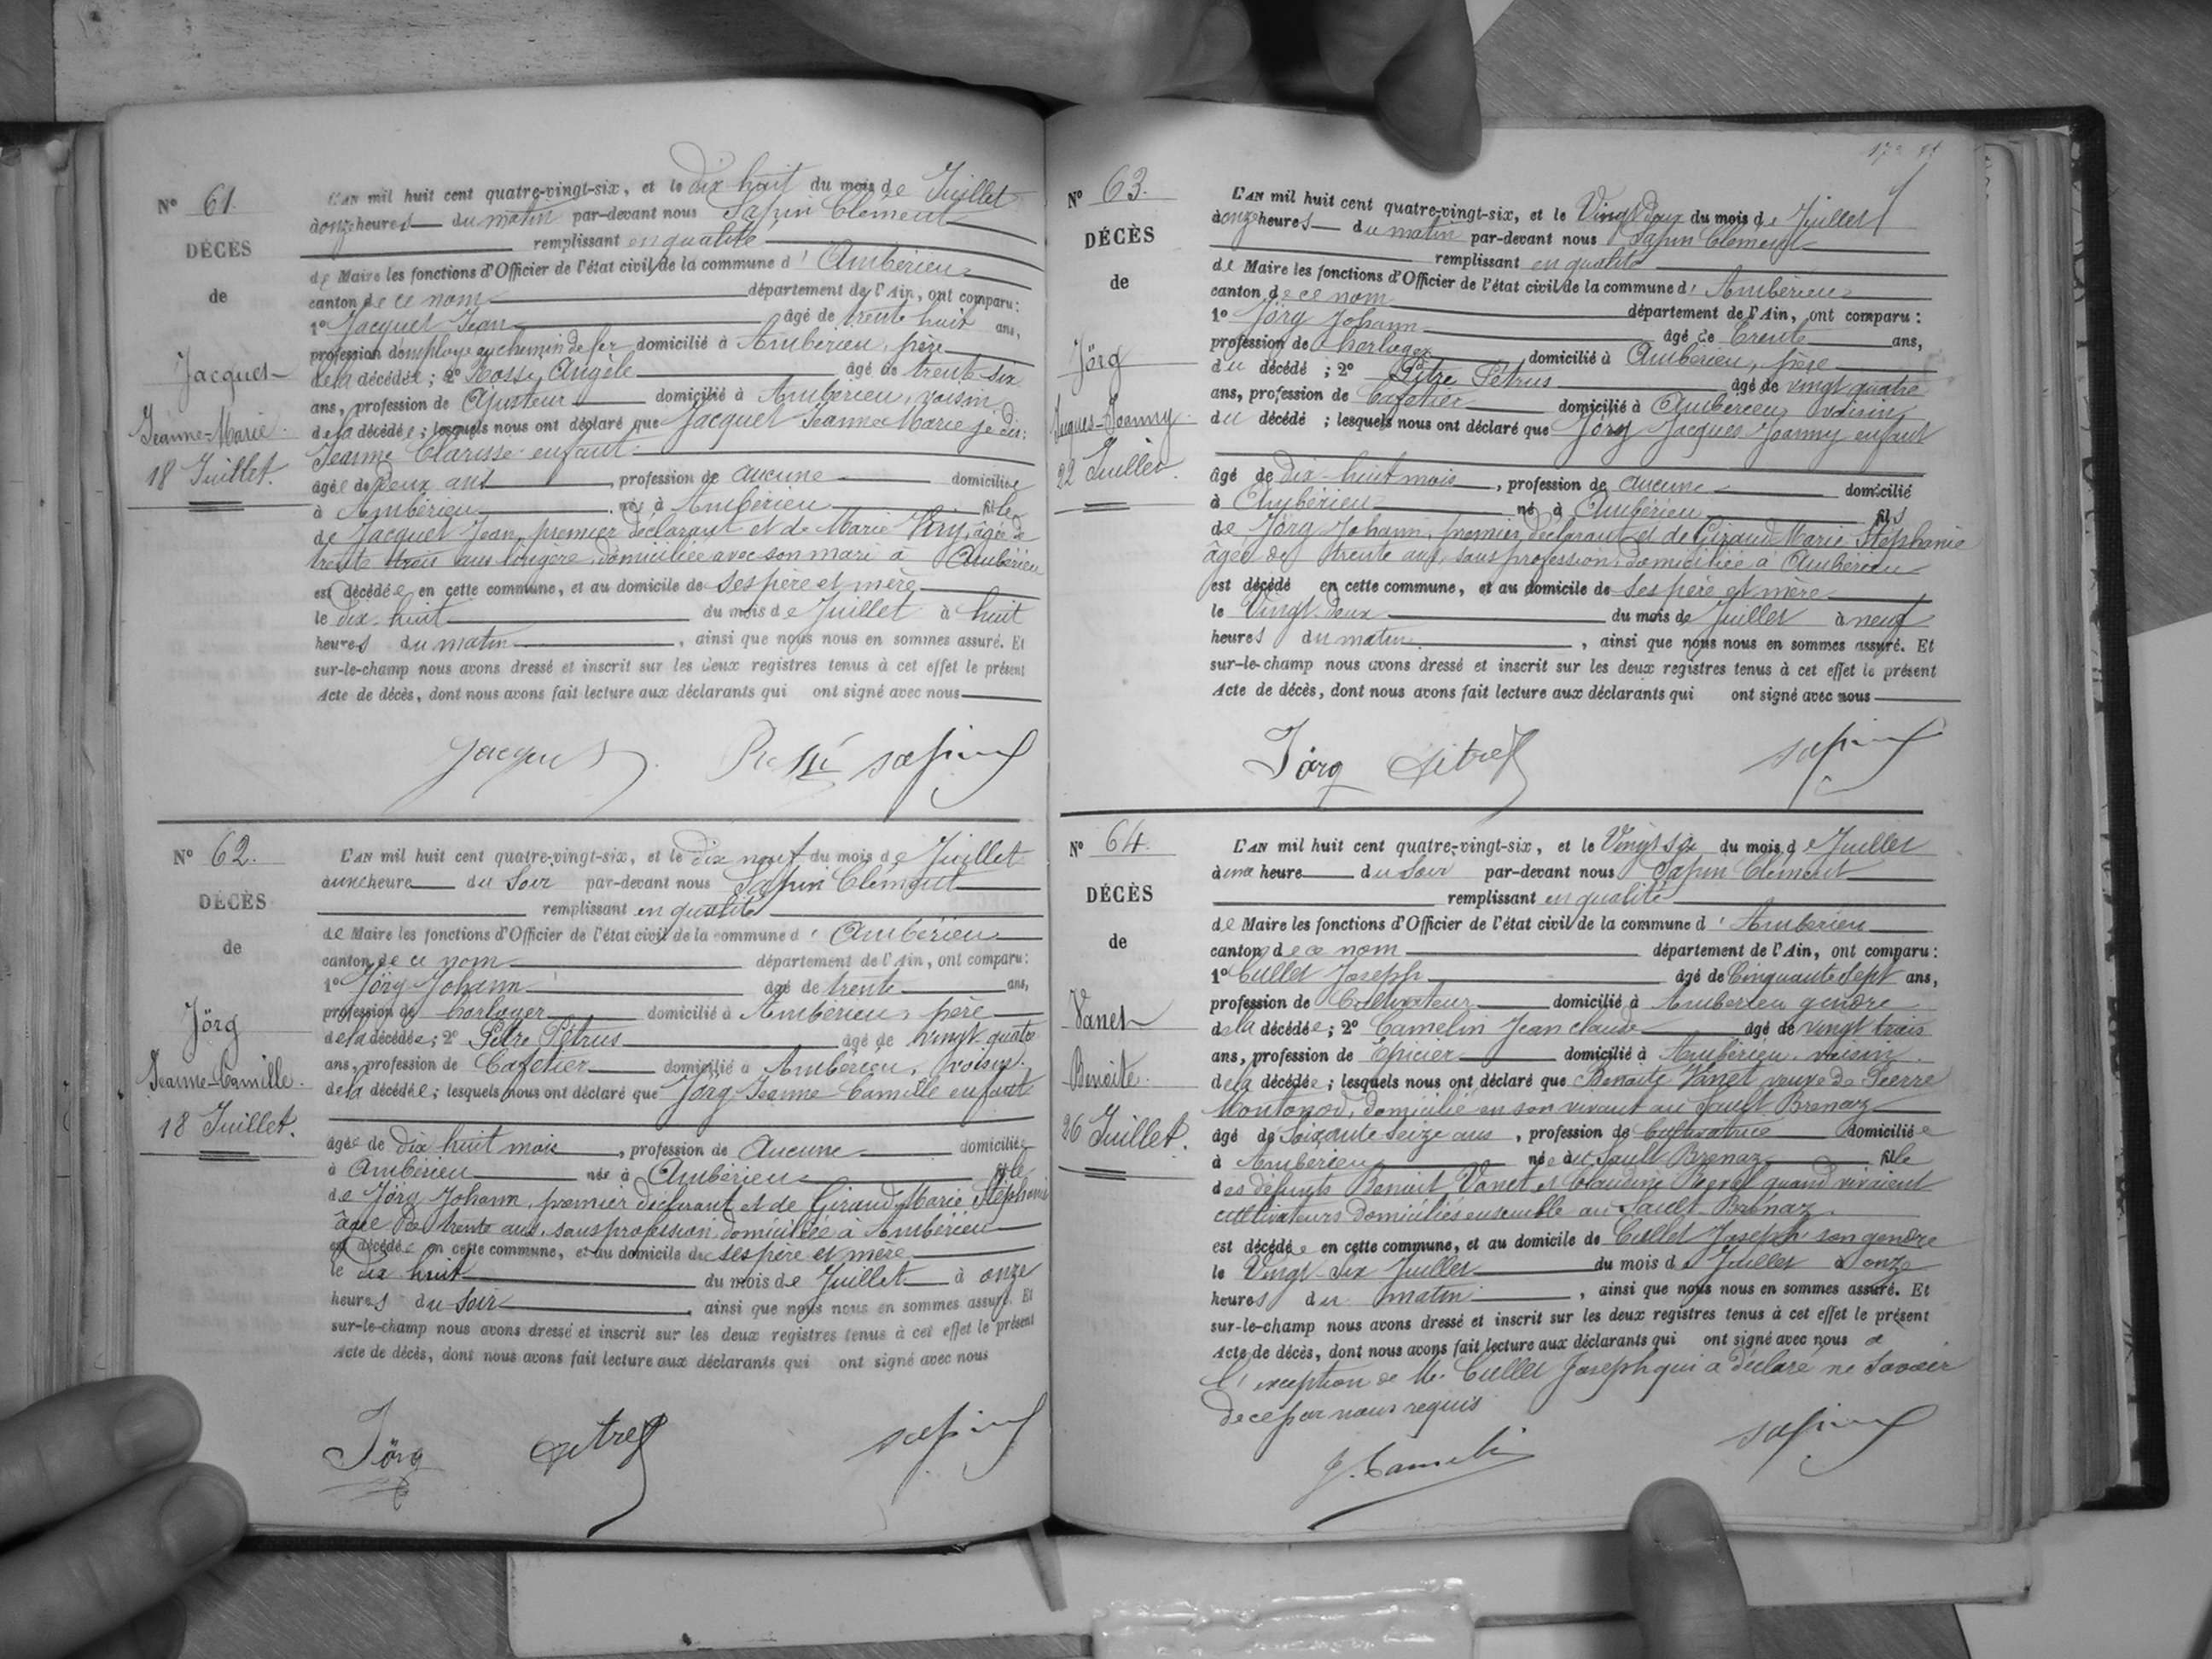 N° 61.
DÉCÈS
de
Jacquet
Jeanne-Marie
18 Juillet.
L'AN mil huit cent quatre-vingt-six, et le dix huit du mois de Juillet
à onze heures du matin par-devant nous Sapin Clément
remplissant en qualité
de Maire les fonctions d'Officier de l'état civil de la commune d'Ambérieu
canton de ce nom département de l'Ain, ont comparu:
1° Jacquet Jean âgé de trente huit ans,
profession d'employé au chemin de fer domicilié à Ambérieu, père
de la décédée; 2° Rossi Angèle âgé de trente six
ans, profession de Ajusteur domicilié à Ambérieu, voisin
de la décédée; lesquels nous ont déclaré que Jacquet Jeanne Marie je dis:
Jeanne Clarisse enfant
âgée de deux ans, profession de aucune domiciliée
à Ambérieu née à Ambérieu fille
de Jacquet Jean, premier déclarant et de Marie âgée de
trente trois ans lingère, domiciliée avec son mari à Ambérieu
est décédée en cette commune, et au domicile de ses père et mère
le dix-huit du mois de Juillet à huit
heures du matin, ainsi que nous nous en sommes assuré. Et
sur-le-champ nous avons dressé et inscrit sur les deux registres tenus à cet effet le présent
Acte de décès, dont nous avons fait lecture aux déclarants qui ont signé avec nous
Jacquet Rossi Sapin
N° 62.
DÉCÈS
de
Jörg
Jeanne-Camille.
18 Juillet.
L'AN mil huit cent quatre-vingt-six, et le dix neuf du mois de Juillet
à une heure du soir par-devant nous Sapin Clément
remplissant en qualité
de Maire les fonctions d'Officier de l'état civil de la commune d'Ambérieu
canton de ce nom département de l'Ain, ont comparu:
1° Jörg Johann âgé de trente ans,
profession de horloger domicilié à Ambérieu, père
de la décédée; 2° Pitre Pétrus âgé de vingt quatre
ans, profession de Cafetier domicilié à Ambérieu, voisin
de la décédée; lesquels nous ont déclaré que Jörg Jeanne Camille enfant
âgée de dix huit mois, profession de Aucune domiciliée
à Ambérieu née à Ambérieu fille
de Jörg Johann, premier déclarant et de Giraud Marie Stéphanie
âgée de trente ans, sans profession domiciliée à Ambérieu
est décédée en cette commune, et au domicile de ses père et mère
le dix huit du mois de Juillet à onze
heures du soir, ainsi que nous nous en sommes assuré. Et
sur-le-champ nous avons dressé et inscrit sur les deux registres tenus à cet effet le présent
Acte de décès, dont nous avons fait lecture aux déclarants qui ont signé avec nous
Jörg Pitre Sapin
N° 63.
DÉCÈS
de
Jörg
Jacques-Joanny
22 Juillet.
L'AN mil huit cent quatre-vingt-six, et le Vingt deux du mois de Juillet
à onze heures du matin par-devant nous Sapin Clément
remplissant en qualité
de Maire les fonctions d'Officier de l'état civil de la commune d'Ambérieu
canton de ce nom département de l'Ain, ont comparu:
1° Jörg Johann âgé de trente ans,
profession de horloger domicilié à Ambérieu, père
du décédé; 2° Pitre Pétrus âgé de vingt quatre
ans, profession de Cafetier domicilié à Ambérieu, voisin
du décédé; lesquels nous ont déclaré que Jörg Jacques Joanny enfant
âgé de dix-huit mois, profession de aucune domicilié
à Ambérieu né à Ambérieu fils
de Jörg Johann, premier déclarant et de Giraud Marie Stéphanie
âgée de trente ans, sans profession, domiciliée à Ambérieu
est décédé en cette commune, et au domicile de ses père et mère
le Vingt deux du mois de Juillet à neuf
heures du matin, ainsi que nous nous en sommes assuré. Et
sur-le-champ nous avons dressé et inscrit sur les deux registres tenus à cet effet le présent
Acte de décès, dont nous avons fait lecture aux déclarants qui ont signé avec nous
Jörg Pitre Sapin
N° 64.
DÉCÈS
de
Vanet
Benoîte.
26 Juillet.
L'AN mil huit cent quatre-vingt-six, et le Vingt six du mois de Juillet
à une heure du soir par-devant nous Sapin Clément
remplissant en qualité
de Maire les fonctions d'Officier de l'état civil de la commune d'Ambérieu
canton de ce nom département de l'Ain, ont comparu:
1° Cullet Joseph âgé de Cinquante sept ans,
profession de Cultivateur domicilié à Ambérieu gendre
de la décédée; 2° Camelin Jean claude âgé de vingt trois
ans, profession de Épicier domicilié à Ambérieu, voisin
de la décédée; lesquels nous ont déclaré que Benoîte Vanet veuve de Pierre
domicilié en son vivant au Sault Brenaz
âgé de soixante seize ans, profession de Cultivatrice domiciliée
à Ambérieu née au Sault Brenaz fille
des défunts Benoit Vanet et Claudine quand vivaient
cultivateurs domiciliés ensemble au Sault-Brénaz.
est décédée en cette commune, et au domicile de Cullet Joseph son gendre
le Vingt-six Juillet du mois de Juillet à onze
heures du matin, ainsi que nous nous en sommes assuré. Et
sur-le-champ nous avons dressé et inscrit sur les deux registres tenus à cet effet le présent
Acte de décès, dont nous avons fait lecture aux déclarants qui ont signé avec nous à
l'exception de M. Cullet Joseph qui a déclaré ne savoir
de ce par nous requis
J. Camelin Sapin